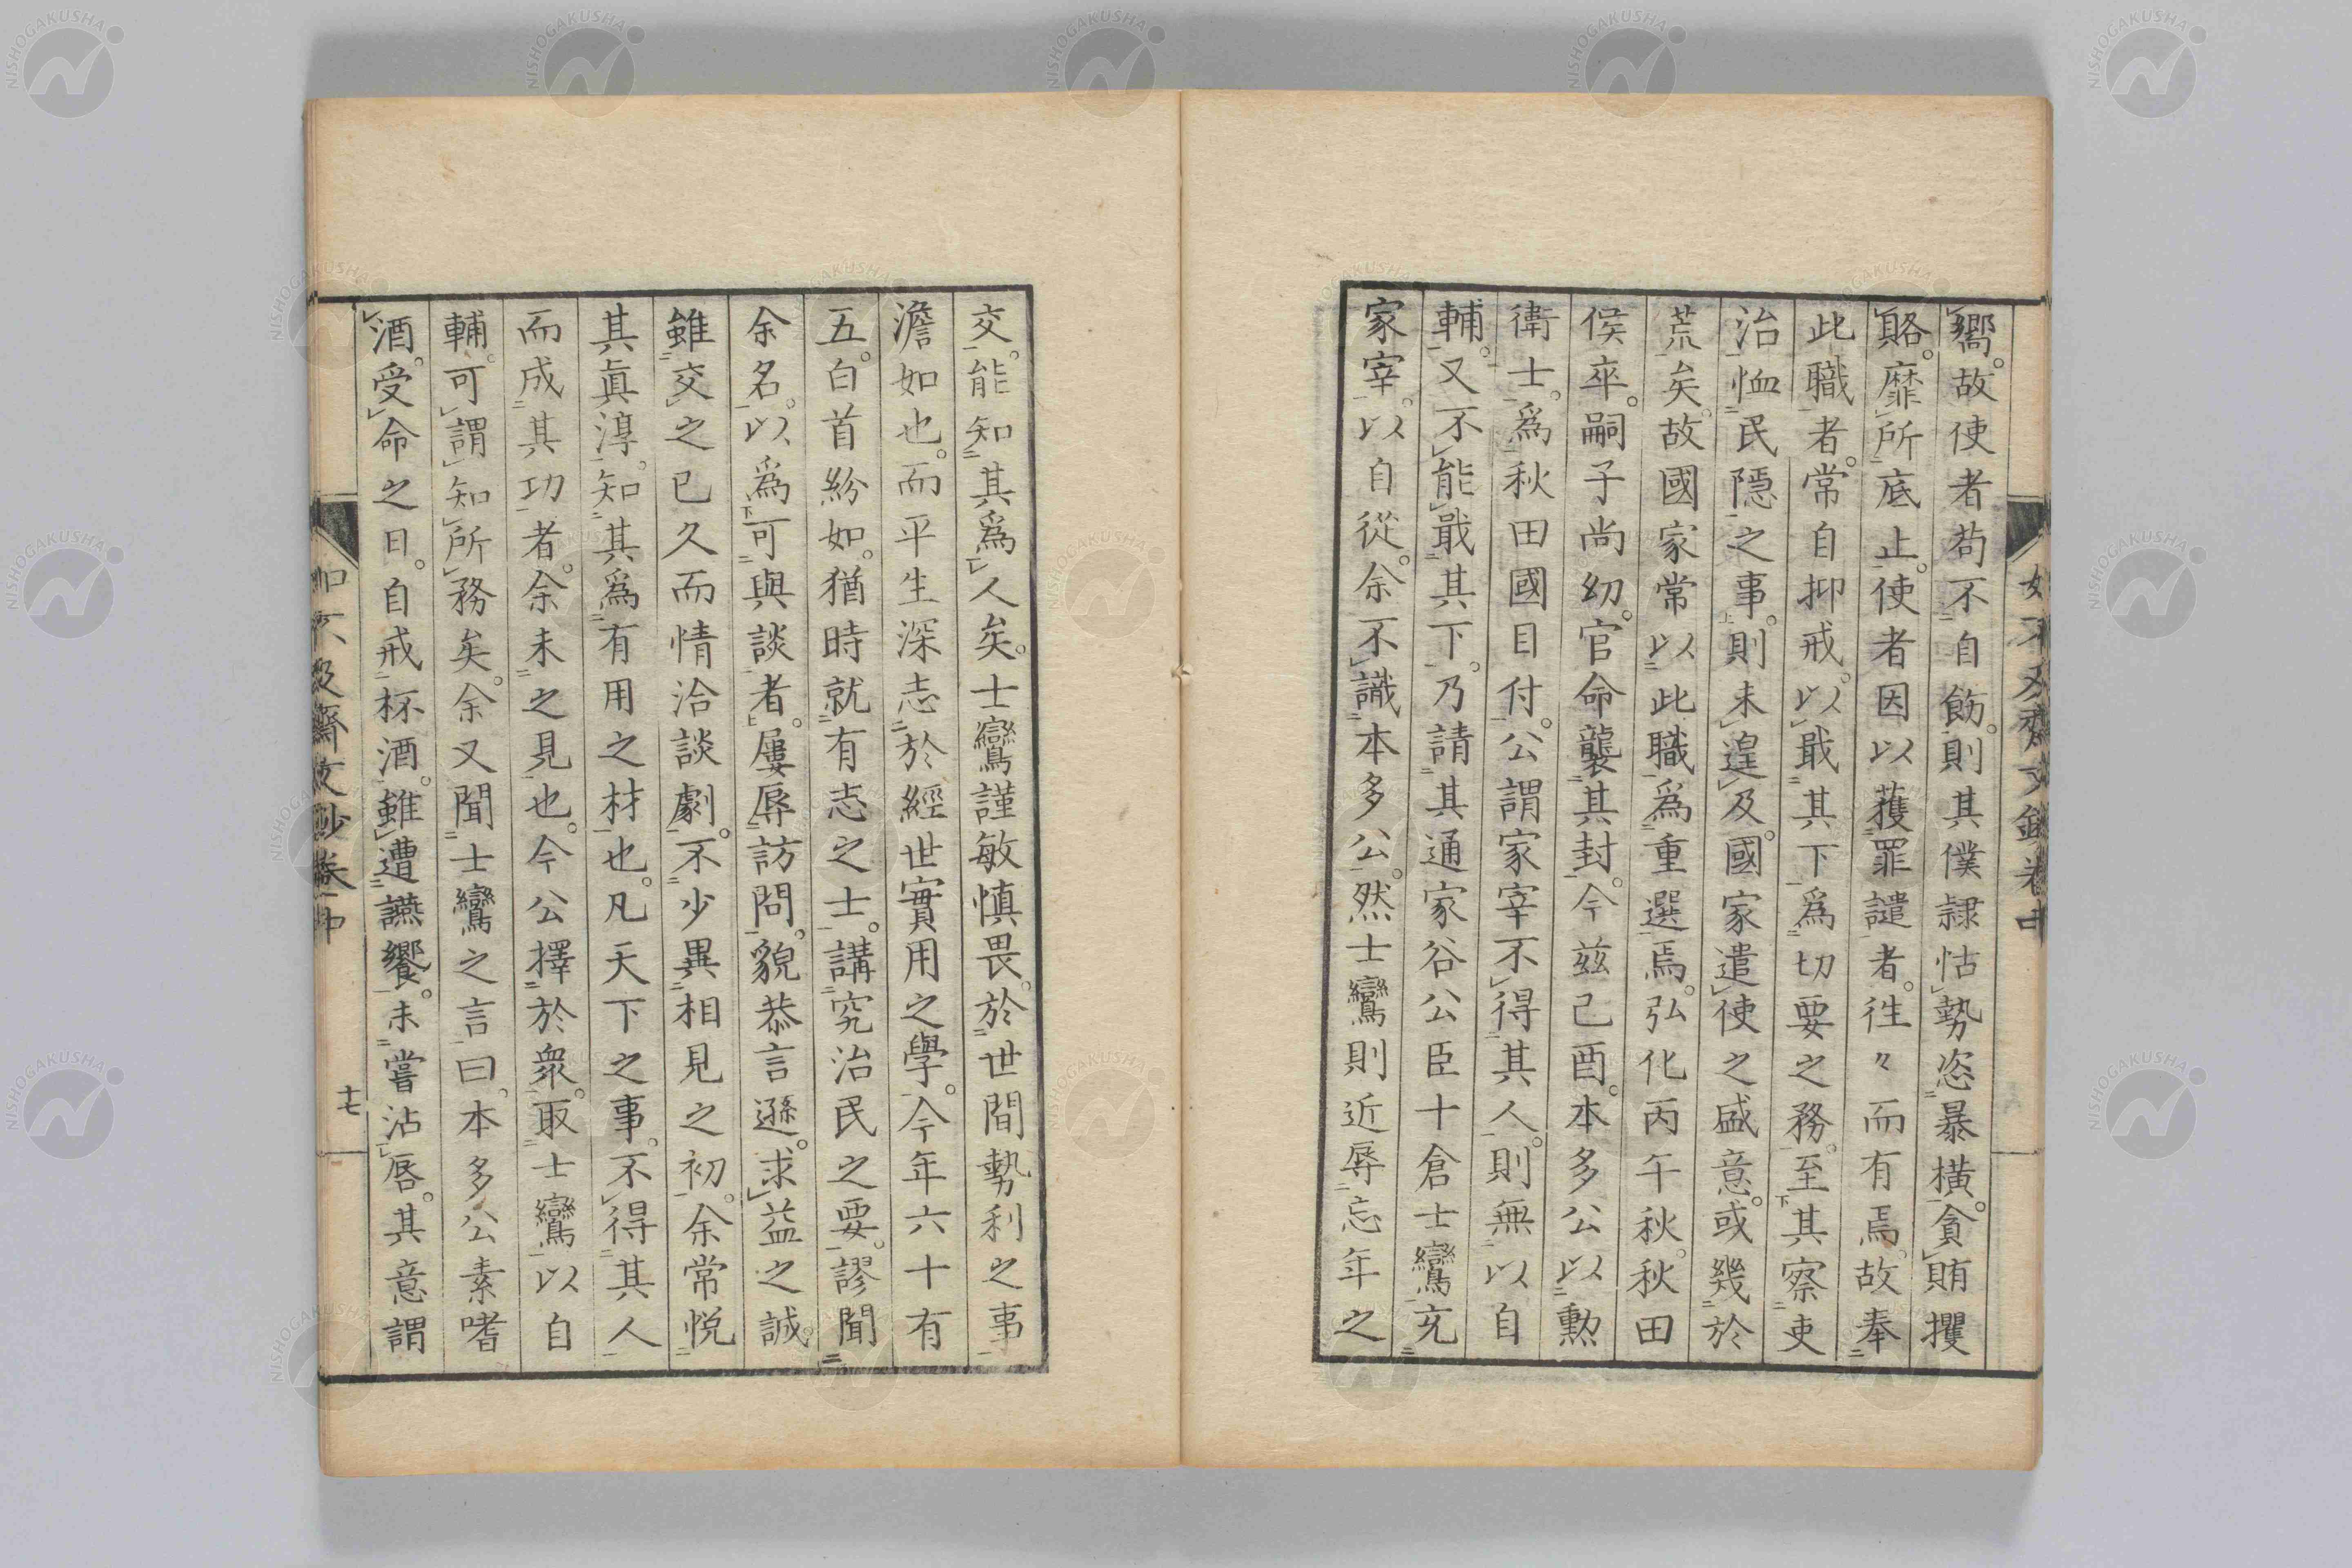 嚮。故使者苟不自飭。則其僕隷怙勢恣暴橫。貪賄攫
賂。靡所底止。使者因以獲罪譴者。徃々而有焉。故奉
此職者。常自抑戒。以戢其下。爲切要之務。至其察吏
治恤民隱之事。則未遑及。國家遣使之盛意。或幾於
荒矣。故國家常以此職爲重選焉。弘化丙午秋。秋田
侯卒。嗣子尚幼。官命襲其封。今茲己酉。本多公以勲
衛士。爲秋田國目付。公謂家宰不得其人。則無以自
輔。又不能戢其下。乃請其通家谷公臣十倉士鸞充
家宰。以自從。余不識本多公。然士鸞則近辱忘年之
交。能知其爲人矣。士鸞謹敏愼畏。於世間勢利之事
澹如也。而平生深志於經世實用之學。今年六十有
五。白首紛如。猶時就有志之士。講究治民之要。謬聞
余名。以爲可與談者。屢辱訪問。貌恭言遜。求益之誠
雖交之已久而情洽談劇。不少異相見之初。余常悅
其眞淳。知其爲有用之材也。凡天下之事。不得其人
而成其功者。余未之見也。今公擇於衆。取士鸞以自
輔。可謂知所務矣。余又聞士鸞之言。曰。本多公素嗜
酒。受命之日。自戒杯酒。雖遭讌饗。未嘗沾唇。其意謂
如不及齋文鈔卷中
十七